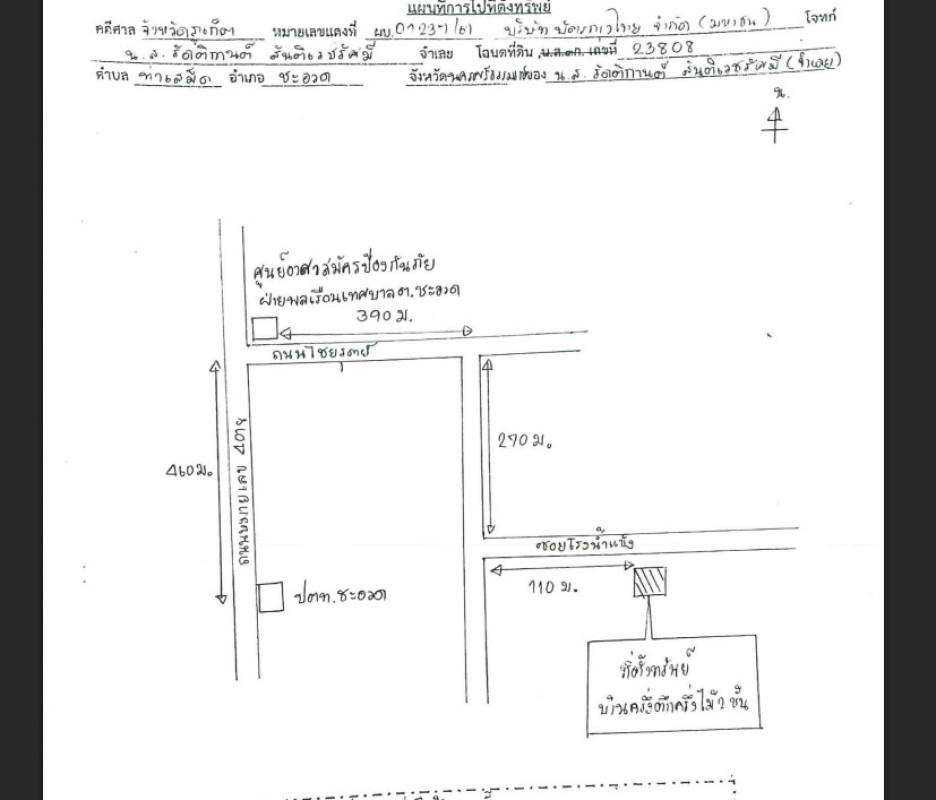 แผนที่การไปที่ตั้งทรัพย์
คดีศาล จังหวัดภูเก็ต หมายเลขแดงที่ ผบ. บริษัท บัตรกรุงไทย จำกัด (มหาชน) โจทก์
น.ส. รัดติกานต์ สันติเวชรัศมี จำเลย โฉนดที่ดิน,น.ส.๓ก. เลขที่ 23808
ตำบล ท่าเสม็ด อำเภอ ชะอวด จังหวัดนครศรีธรรมราชของ น.ส. รัดติกานต์ สันติเวชรัศมี (จำเลย)
น.
ศูนย์อาสาสมัครป้องกันภัย
ฝ่ายพลเรือนเทศบาลต.ชะอวด
390 ม.
ถนนไชยรตย์
460 ม.
ถนนหมายเลข
270 ม.
ซอยโรงน้ำแข็ง
110 ม.
ปตท.ชะอวด
ที่ตั้งทรัพย์
บ้านครึ่งตึกครึ่งไม้ 2 ชั้น